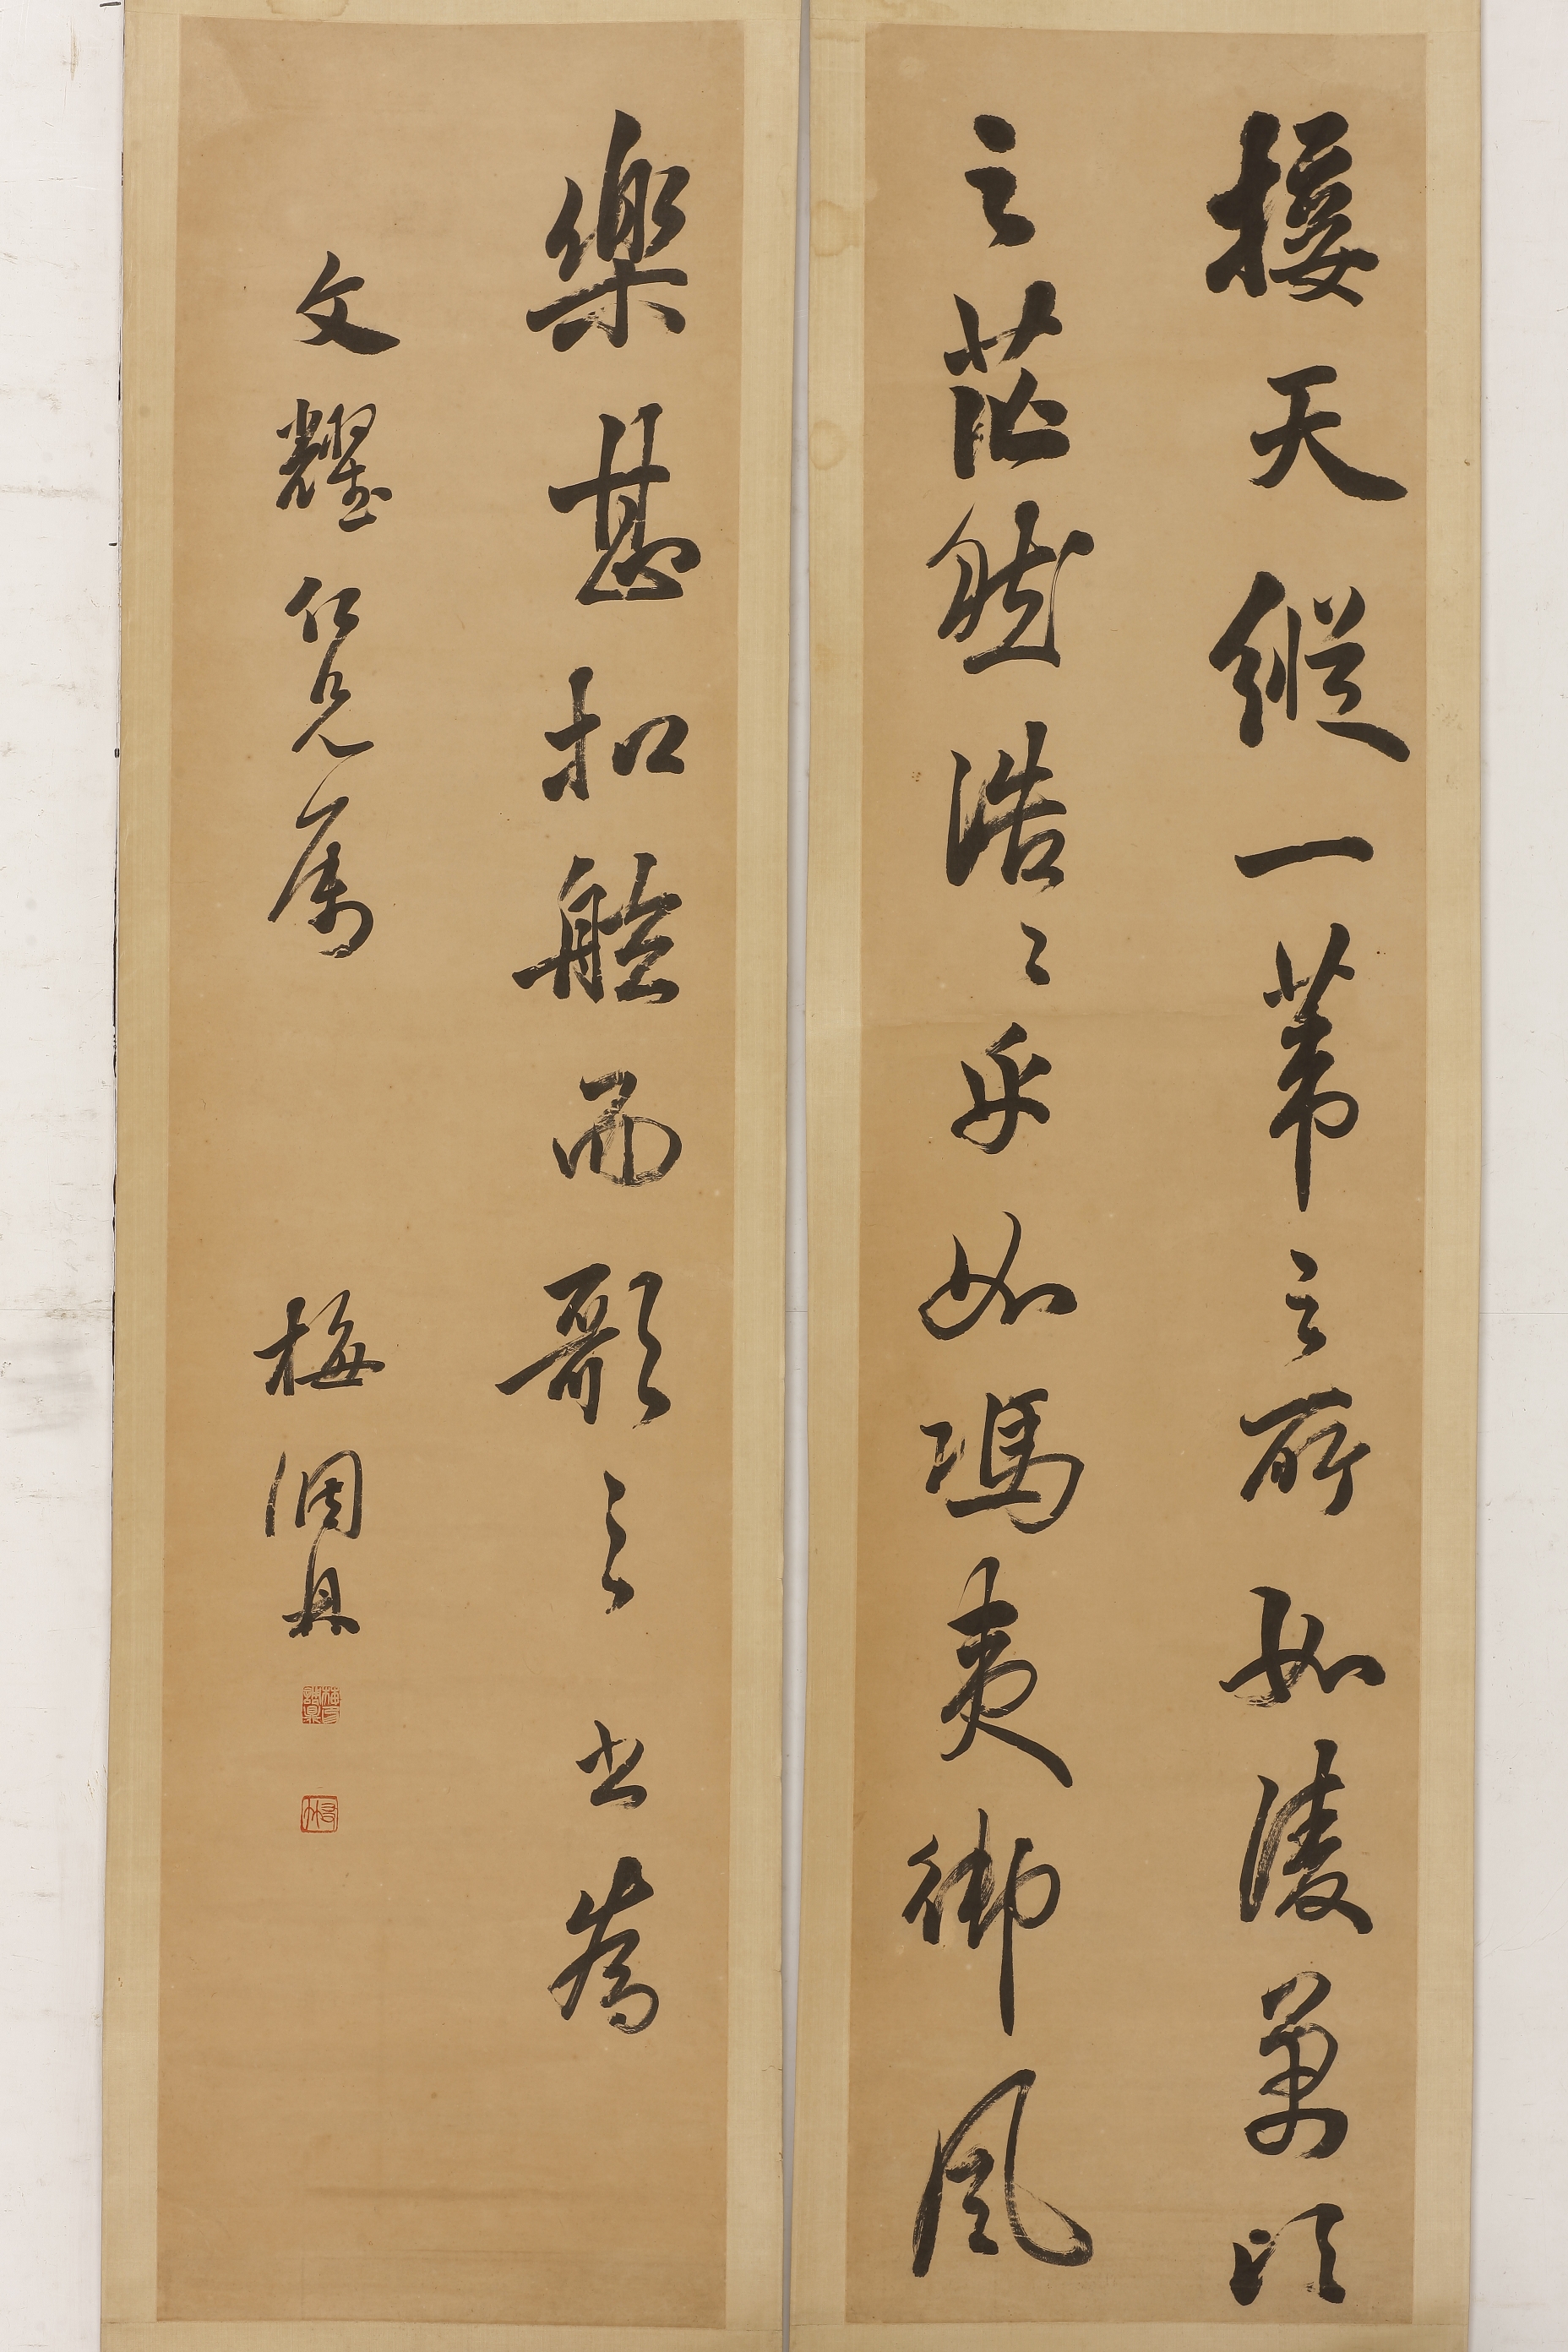 接天縱一葦之所如凌萬頃
之茫然浩々乎如馮夷御風
樂甚扣舷而歌之書為
文耀仁兄屬
梅調鼎